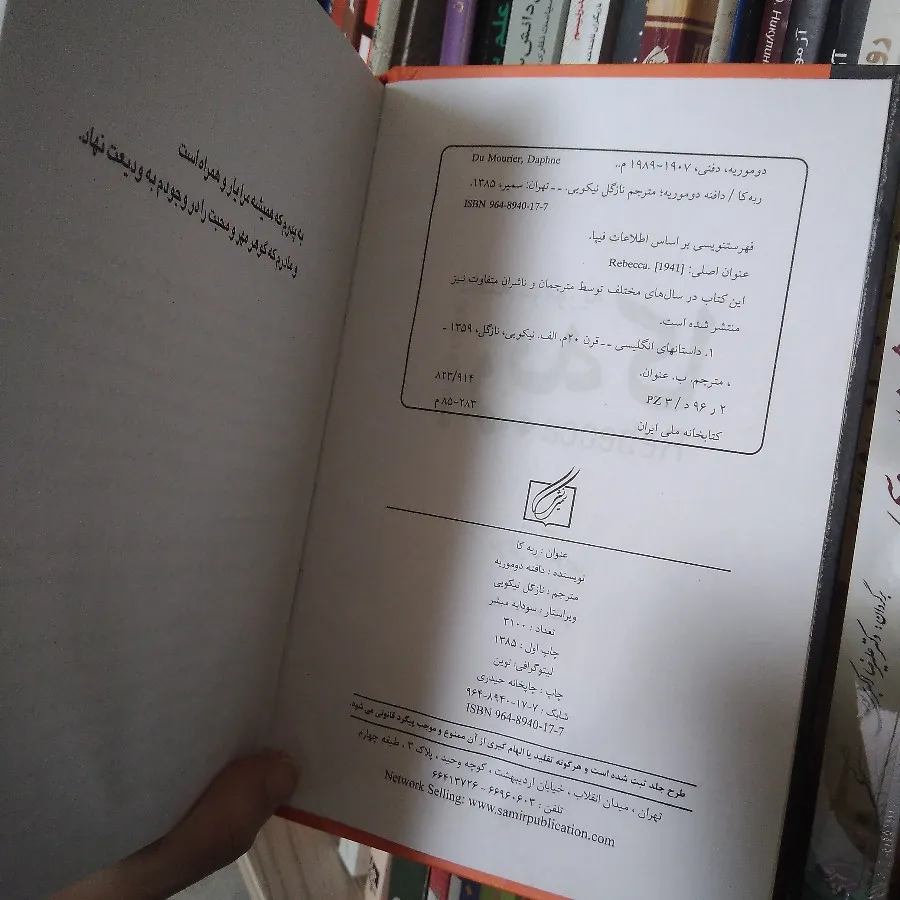 دوموریه، دفنی، ۱۹۰۷-۱۹۸۹ م..
Du Mourier, Daphne
ربه کا / دافنه دوموریه؛ مترجم نازگل نیکویی. -- تهران: سمیر، ۱۳۸۵.
ISBN 964-8940-17-7
فهرستنویسی بر اساس اطلاعات فیپا.
عنوان اصلی: Rebecca. [1941]
این کتاب در سال‌های مختلف توسط مترجمان و ناشران متفاوت نیز
منتشر شده است.
۱. داستانهای انگلیسی -- قرن ۲۰م. الف. نیکویی، نازگل، ۱۳۵۹ -
، مترجم. ب. عنوان.
۸۲۳/۹۱۴
۲ ر ۹۶ د / PZ ۳
۸۵-۲۸۳ م
کتابخانه ملی ایران
عنوان : ربه کا
نویسنده : دافنه دوموریه
مترجم : نازگل نیکویی
ویراستار : سودابه مبشر
تعداد : ۳۱۰۰
چاپ اول : ۱۳۸۵
لیتوگرافی: نوین
چاپ : چاپخانه حیدری
شابک : ۷-۱۷-۸۹۴۰-۹۶۴
ISBN 964-8940-17-7
طرح جلد ثبت شده است و هرگونه تقلید یا الهام گیری از آن ممنوع و موجب پیگرد قانونی می شود.
تهران ، میدان انقلاب ، خیابان اردیبهشت ، کوچه وحید ، پلاک ۳ ، طبقه چهارم
تلفن : ۶۶۹۶۰۶۰۳ - ۶۶۴۱۳۷۲۶
Network Selling: www.samirpublication.com
به پدرم که همیشه مرا یار و همراه است
و مادرم که گوهر مهر و محبت را در وجودم به ودیعت نهاد.